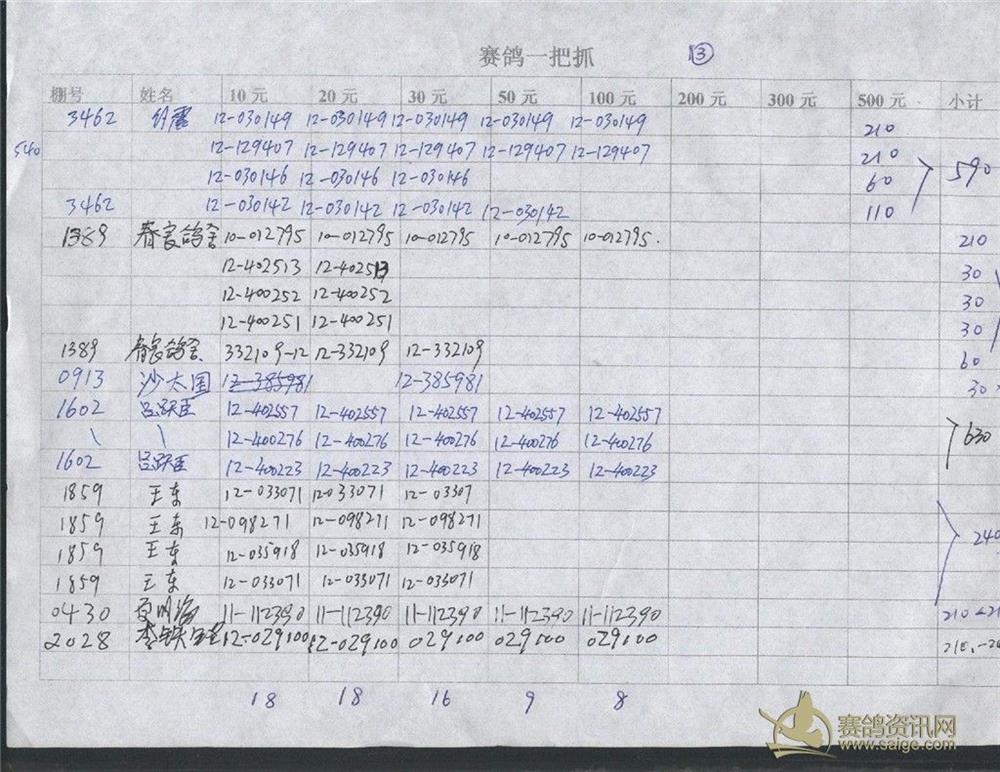 赛鸽一把抓 ③
棚号 姓名 10元 20元 30元 50元 100元 200元 300元 500元 小计
3462 12-030149 12-030149 12-030149 12-030149 12-030149 210
540 12-129407 12-129407 12-129407 12-129407 12-129407 210
12-030146 12-030146 12-030146 60 590
3462 12-030142 12-030142 12-030142 12-030142 110
1389 春良鸽舍 10-012795 10-012795 10-012795 10-012795 10-012795. 210
12-402513 12-402513 30
12-400252 12-400252 30
12-400251 12-400251 30
1389 春良鸽舍 332109-12 12-332109 12-332109 60
0913 沙大国 12-385981 12-385981 30
1602 吕跃臣 12-402557 12-402557 12-402557 12-402557 12-402557
12-400276 12-400276 12-400276 12-400276 12-400276 630
1602 吕跃臣 12-400223 12-400223 12-400223 12-400223 12-400223
1859 王东 12-033071 12-033071 12-03307
1859 王东 12-098271 12-098271 12-098271
1859 王东 12-035918 12-035918 12-035918 240
1859 王东 12-033071 12-033071 12-033071
0430 11-112390 11-112390 11-112390 11-112390 11-112390 210
2028 12-029100 12-029100 029100 029100 029100 210
18 18 16 9 8
赛鸽资讯网
www.saige.com